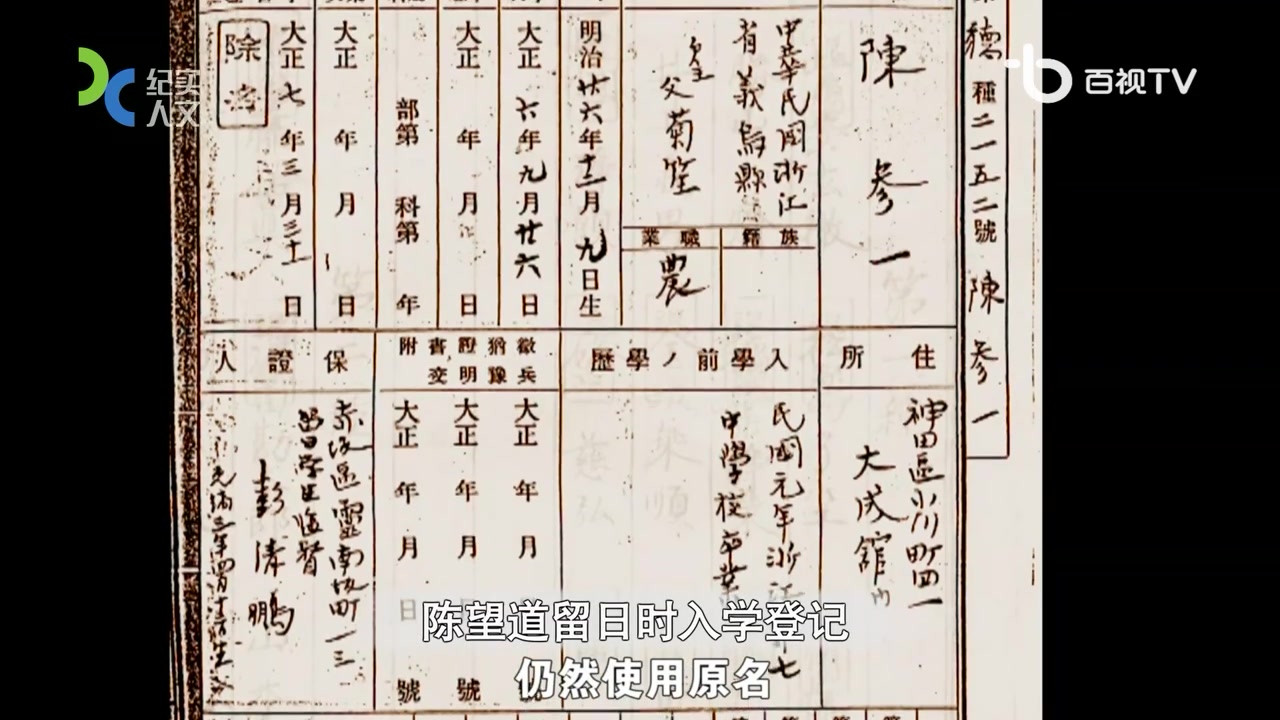 纪实
人文
百视TV
種二一五二號 陳參一
陳參一
中華民國浙江
省義烏縣
父菊笙
族籍
職業
農
明治廿六年十二月九日生
大正六年九月廿六日
大正 年 月 日
部第 科第 年
大正 年 月 日
大正七年三月三十一日
除
住所
神田區小川町四一
大成館
入學前ノ學歷
民國元年浙江 七
中學校卒業
徵兵
猶豫
證明
書交
附
大正 年 月 號
大正 年 月 號
大正 年 月 日 號
保證人
赤坂區靈南坂町一三
留日學生監督
彭清鵬
陈望道留日时入学登记
仍然使用原名